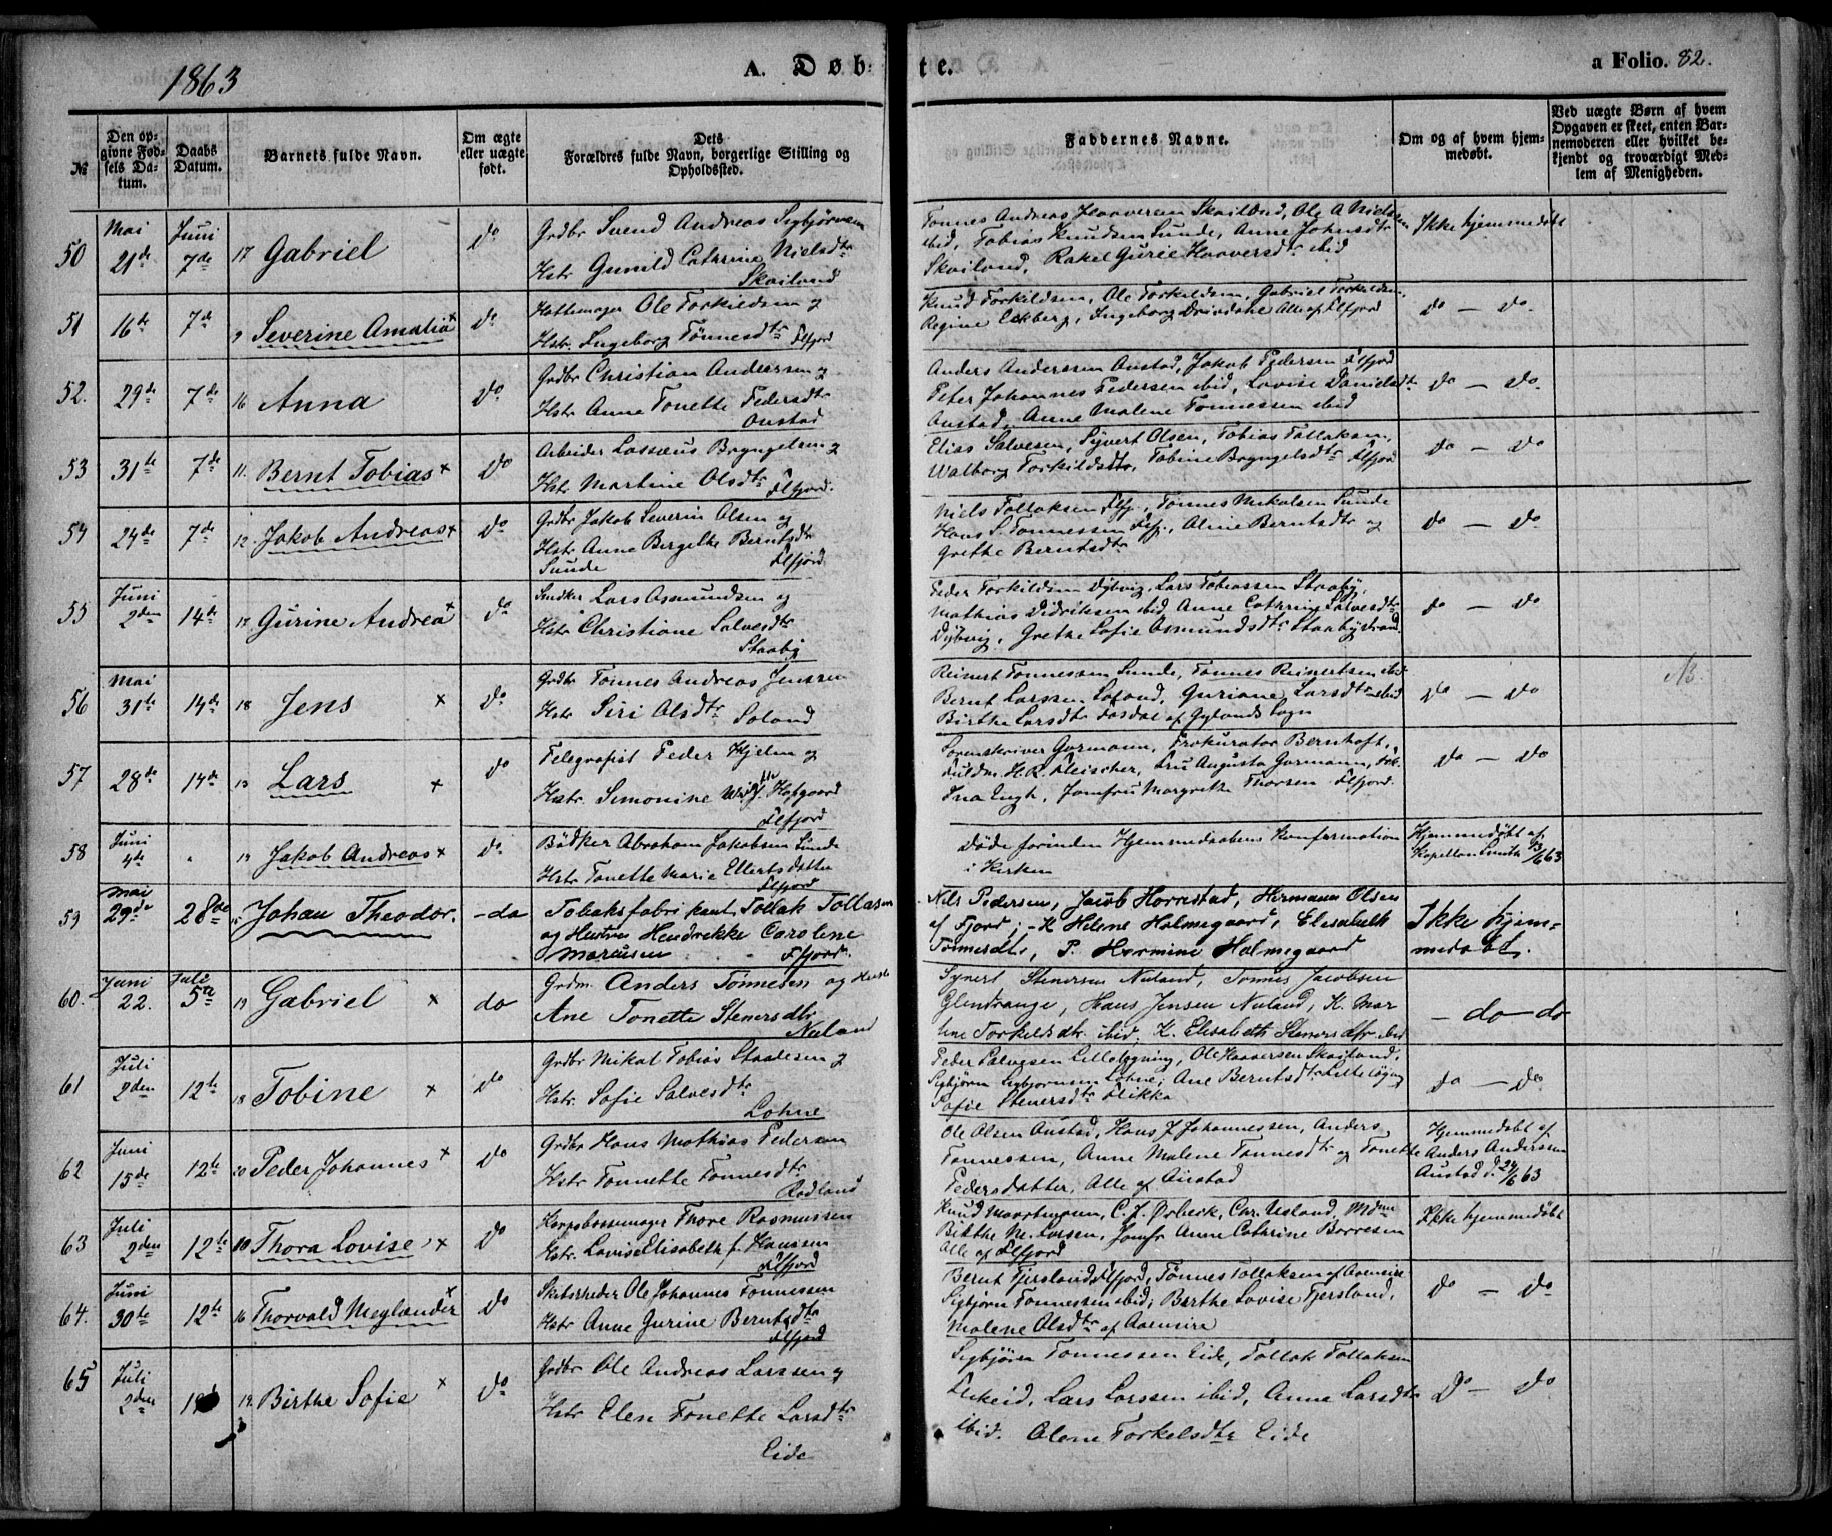 1863
A. Døbte.
a Folio. 82.
No
Den op-
givne Fød-
sels Da-
tum.
Daabs
Datum.
Barnets fulde Navn.
Om ægte
eller uægte
født.
Dets
Forældres fulde Navn, borgerlige Stilling og
Opholdssted.
Faddernes Navne.
Om og af hvem hjem-
medøbt.
Ved uægte Børn af hvem
Opgaven er skeet, enten Bar-
nemoderen eller hvilket be-
kjendt og troværdigt Med-
lem af Menigheden.
50 Mai 21de Juni 7de 17 Gabriel do
Grdbr Svend Andreas Sigbjørnsen
Hstr Gunild Cathrine Nielsdtr
Skailand
Tonnes Andreas Haaversen Skailand, Ole A Nielsen
ibid, Tobias Knudsen Sunde, Anne Johnsdtr
Skailand, Rakel Gurie Haaversdtr ibid
Ikke hjemmedøbt
51 16de 7de 9 Severine Amalia x do
Hattemager Ole Torkildsen og
Hstr. Ingeborg Tønnesdtr Flfjord
Knud Torkildsen, Ole Torkildsen, Gabriel Torkildsen,
Regine Eckberg, Ingeborg Drivdahl Alle af Flfjord
do — do.
52. 29de 7de 16 Anna do
Grdbr Christian Anderssen og
Hstr Anne Tonette Pedersdtr
Austad
Anders Anderssen Austad, Jakob Pedersen Flfjord
Peter Johannes Pedersen ibid, Lovise Danielsdtr
Austad, Anne Malene Tonnessen ibid
do — do.
53 31te 7de 11. Bernt Tobias x do
Arbeider Lassæus Bryngelsen og
Hstr Martine Olsdtr Flfjord.
Elias Salvesen, Syvert Olsen, Tobias Tollaksen,
Walborg Torkildsdtr, Tobine Bryngelsdtr Flfjord
do — do
54 24de 7de 12. Jakob Andreas x do
Grdbr Jakob Severin Olsen og
Hstr Anne Bergithe Berntsdtr
Sunde Flfjord
Niels Tollaksen Flfj., Tønnes Mikalsen Sunde
Hans S. Tonnessen Flfj., Aline Berntsdtr og
Grethe Berntsdtr
do — do
55 Juni 2den 14de 12 Gurine Andrea x do
Snedker Lars Asmundsen og
Hstr Christiane Salvesdtr
Staaby
Peder Torkildsen Dybvig, Lars Tobiassen Staaby,
Mathias Didriksen ibid Anne Cathrine Salvesdtr
Dybvig, Grethe Sofie Asmundsdtr Staabystrand
do — do
56 Mai 31te 14de 18 Jens x do
Grdbr Tonnes Andreas Jenssen
Hstr Siri Olsdtr Soland
Reinert Tonnessen Sunde, Tonnes Reinertsen ibid
Bernt Larssen Soland, Guriane Larsdtr ibid
Birthe Larsdtr Aasdal af Gylands Sogn
do — do
57 28de 14de 13 Lars x do
Telegrafist Peder Hjelm og
Hstr. Simonine Hofgaard
Flfjord
Sorenskriver Garmann, Prokurator Bernhoft,
Fuldm. H. R. Fleischer, Fru Augusta Garmann,
Ina Engh, Jomfru Margrethe Thorsen Flfjord.
do — do
58 Juni 4de " 13 Jakob Andreas x do
Bødker Abraham Jakobsen Sunde
Hstr Tonette Marie Ellertsdatter
Flfjord
Døde forinden Hjemmedaabens Konfirmation
i Kirken
Hjemmedøbt af
Kapellan Smith 13/6 63
59 Mai 29de 28de 15 Johan Theodor. - do
Tobaksfabrikant Tollak Tollasen
og Hustru Hendrikke Caroline
Marcusen Flfjord.
Nils Pedersen, Jacob Horrestad, Hermann Olsen
af Fjord; - K Helene Holmegaard, Elisabeth
Tønnesdtr, P. Hermine Holmegaard
Ikke hjem-
medøbt.
60. Juni 22. Juli 5te 19 Gabriel x do
Grdm. Anders Tønnesen og Hustr
Ane Tonette Stenersdtr
Nuland
Syvert Stenersen Nuland, Tonnes Jacobsen
Glendrange, Hans Jensen Nuland, K. Mar-
line Torkildsdtr ibid; K. Elisabeth Stenersdtr ibid
— do — do
61 Juli 2den 12te 18 Tobine x do
Grdbr Mikal Tobias Staalesen og
Hstr. Sofie Salvesdtr
Lohne
Peder Salvesen Lillelogning, Ole Haaversen Skailand,
Sigbjørn Sigbjørnsen Lohne, Ane Berntsdtr Lillelogning
Sofie Stenersdtr Flikka
do — do
62 Juni 15de 12te 20 Peder Johannes x do
Grdbr Hans Mathias Pedersen
Hstr Tonnette Tonnesdtr
Rødland
Ole Olsen Austad, Hans J Johannessen, Anders
Tonnessen, Anne Malene Tonnesdtr og Tonette
Pedersdatter, Alle af Austad
Hjemmedøbt af
Anders Anderssen
Austad d. 24/6 63
63 Juli 2den 12te 10 Thora Lovise x do
Korpsbøssemager Thore Rasmussen
Hstr. Lovise Elisabeth f. Hanssen
Flfjord
Knud Maartmann, C. F. Ørbeck, Chr. Usland, Mdme
Birthe M. Iversen, Jomfr Anne Cathrine Borresen
Alle af Flfjord
Ikke hjemmedøbt
64. Juni 30te 12te 16 Thorvald Meylænder x do
Skibsrheder Ole Johannes Tonnessen
Hstr Anne Gurine Berntsdtr
Flfjord
Bernt Tjersland Flfjord, Tønnes Tollaksen af Aaensire
Sigbjørn Tonnessen ibid; Berthe Lovise Tjersland,
Malene Olsdtr af Aaensire
do — do
65 Juli 2den 19. Birthe Sofie x do
Grdbr Ole Andreas Larssen og
Hstr Elen Tonette Larsdtr
Eide
Sigbjørn Tonnessen Eide, Tollak Tollaksen
Lars Larssen ibid, Anna Larsdtr
ibid. Alene Torkelsdtr Eide
do — do